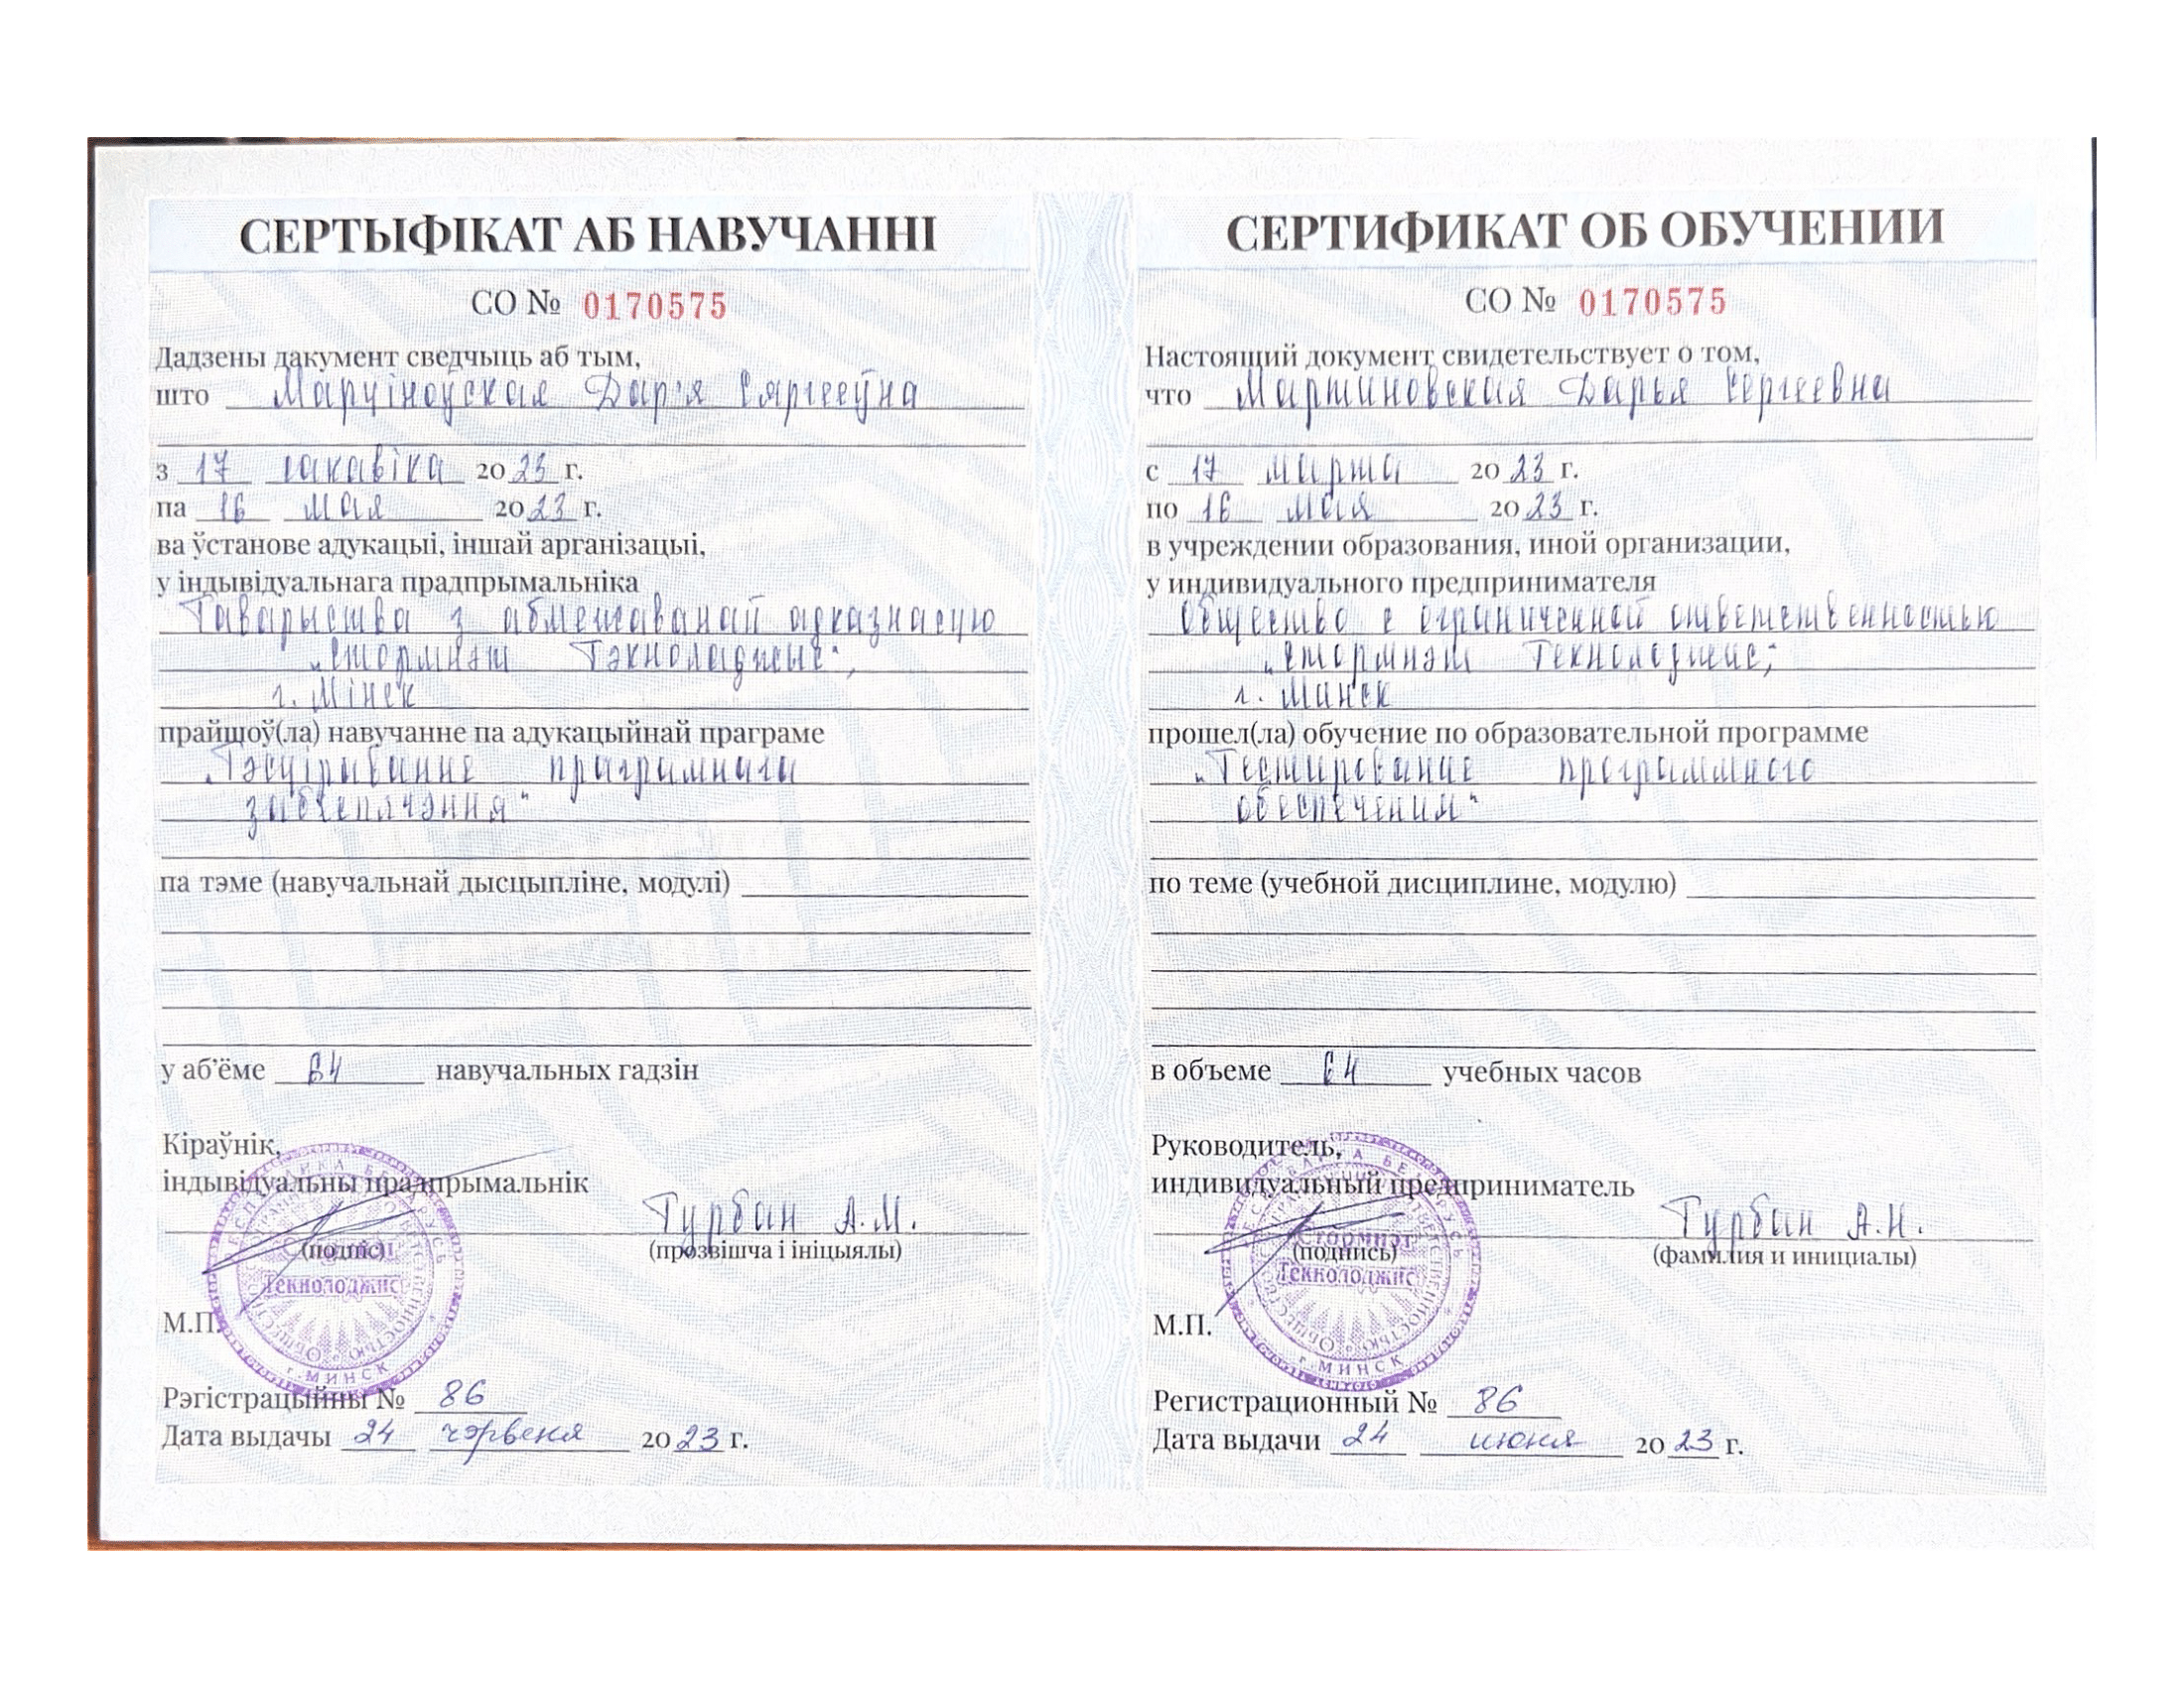 СЕРТЫФІКАТ АБ НАВУЧАННІ
СО № 0170575
Дадзены дакумент сведчыць аб тым,
што Марціноўская Дар'я Сяргееўна
з 17 сакавіка 2023 г.
па 16 мая 2023 г.
ва ўстанове адукацыі, іншай арганізацыі,
у індывідуальнага прадпрымальніка
Таварыства з абмежаванай адказнасцю
„Стормнэт Тэкноладжыс",
г. Мінск
прайшоў(ла) навучанне па адукацыйнай праграме
„Тэсціраванне праграмнага
забеспячэння"
па тэме (навучальнай дысцыпліне, модулі)
у аб'ёме 64 навучальных гадзін
Кіраўнік,
індывідуальны прадпрымальнік
Турбан А.М.
(подпіс) (прозвішча і ініцыялы)
Текнолоджис
г. МИНСК
М.П.
Рэгістрацыйны № 86
Дата выдачы 24 чэрвеня 2023 г.
СЕРТИФИКАТ ОБ ОБУЧЕНИИ
СО № 0170575
Настоящий документ свидетельствует о том,
что Мартиновская Дарья Сергеевна
с 17 марта 2023 г.
по 16 мая 2023 г.
в учреждении образования, иной организации,
у индивидуального предпринимателя
Общество с ограниченной ответственностью
„Стормнэт Текнолоджис",
г. Минск
прошел(ла) обучение по образовательной программе
„Тестирование программного
обеспечения"
по теме (учебной дисциплине, модулю)
в объеме 64 учебных часов
Руководитель,
индивидуальный предприниматель
Турбан А.Н.
(подпись) (фамилия и инициалы)
Стормнэт
Текнолоджис
г. МИНСК
М.П.
Регистрационный № 86
Дата выдачи 24 июня 2023 г.